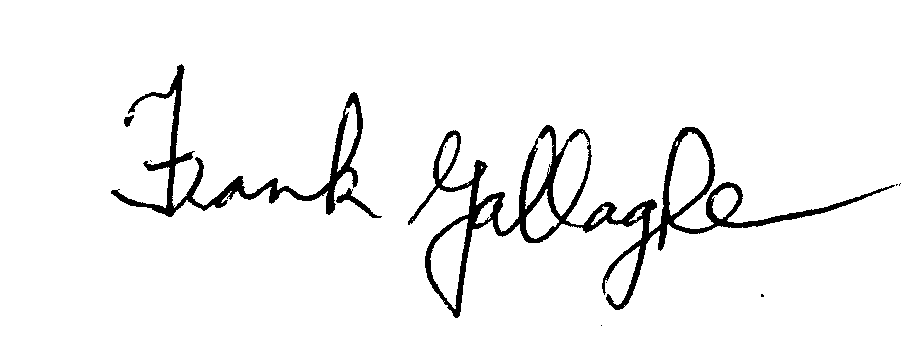 Frank Gallaghe